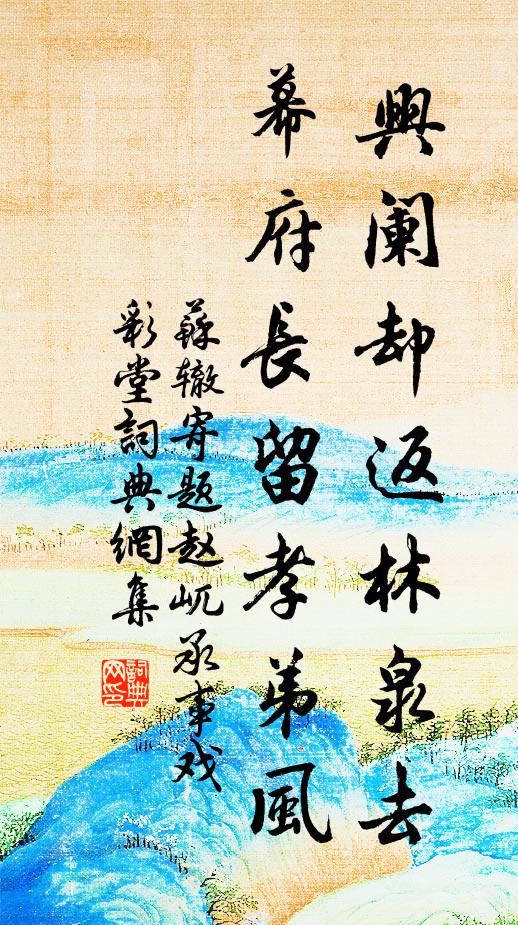 興阑却返林泉去
幕府長留孝弟風
蘇辙寄题赵屼承事戏
彩堂詞典網集
詞典
网印